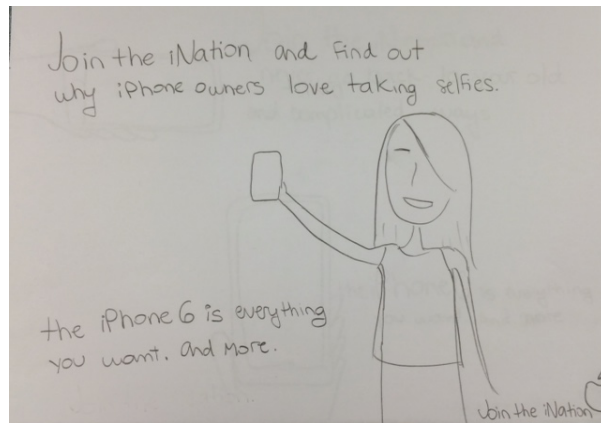 Join the iNation and find out
why iPhone owners love taking selfies.
the iPhone 6 is everything
you want. And More.
Join the iNation